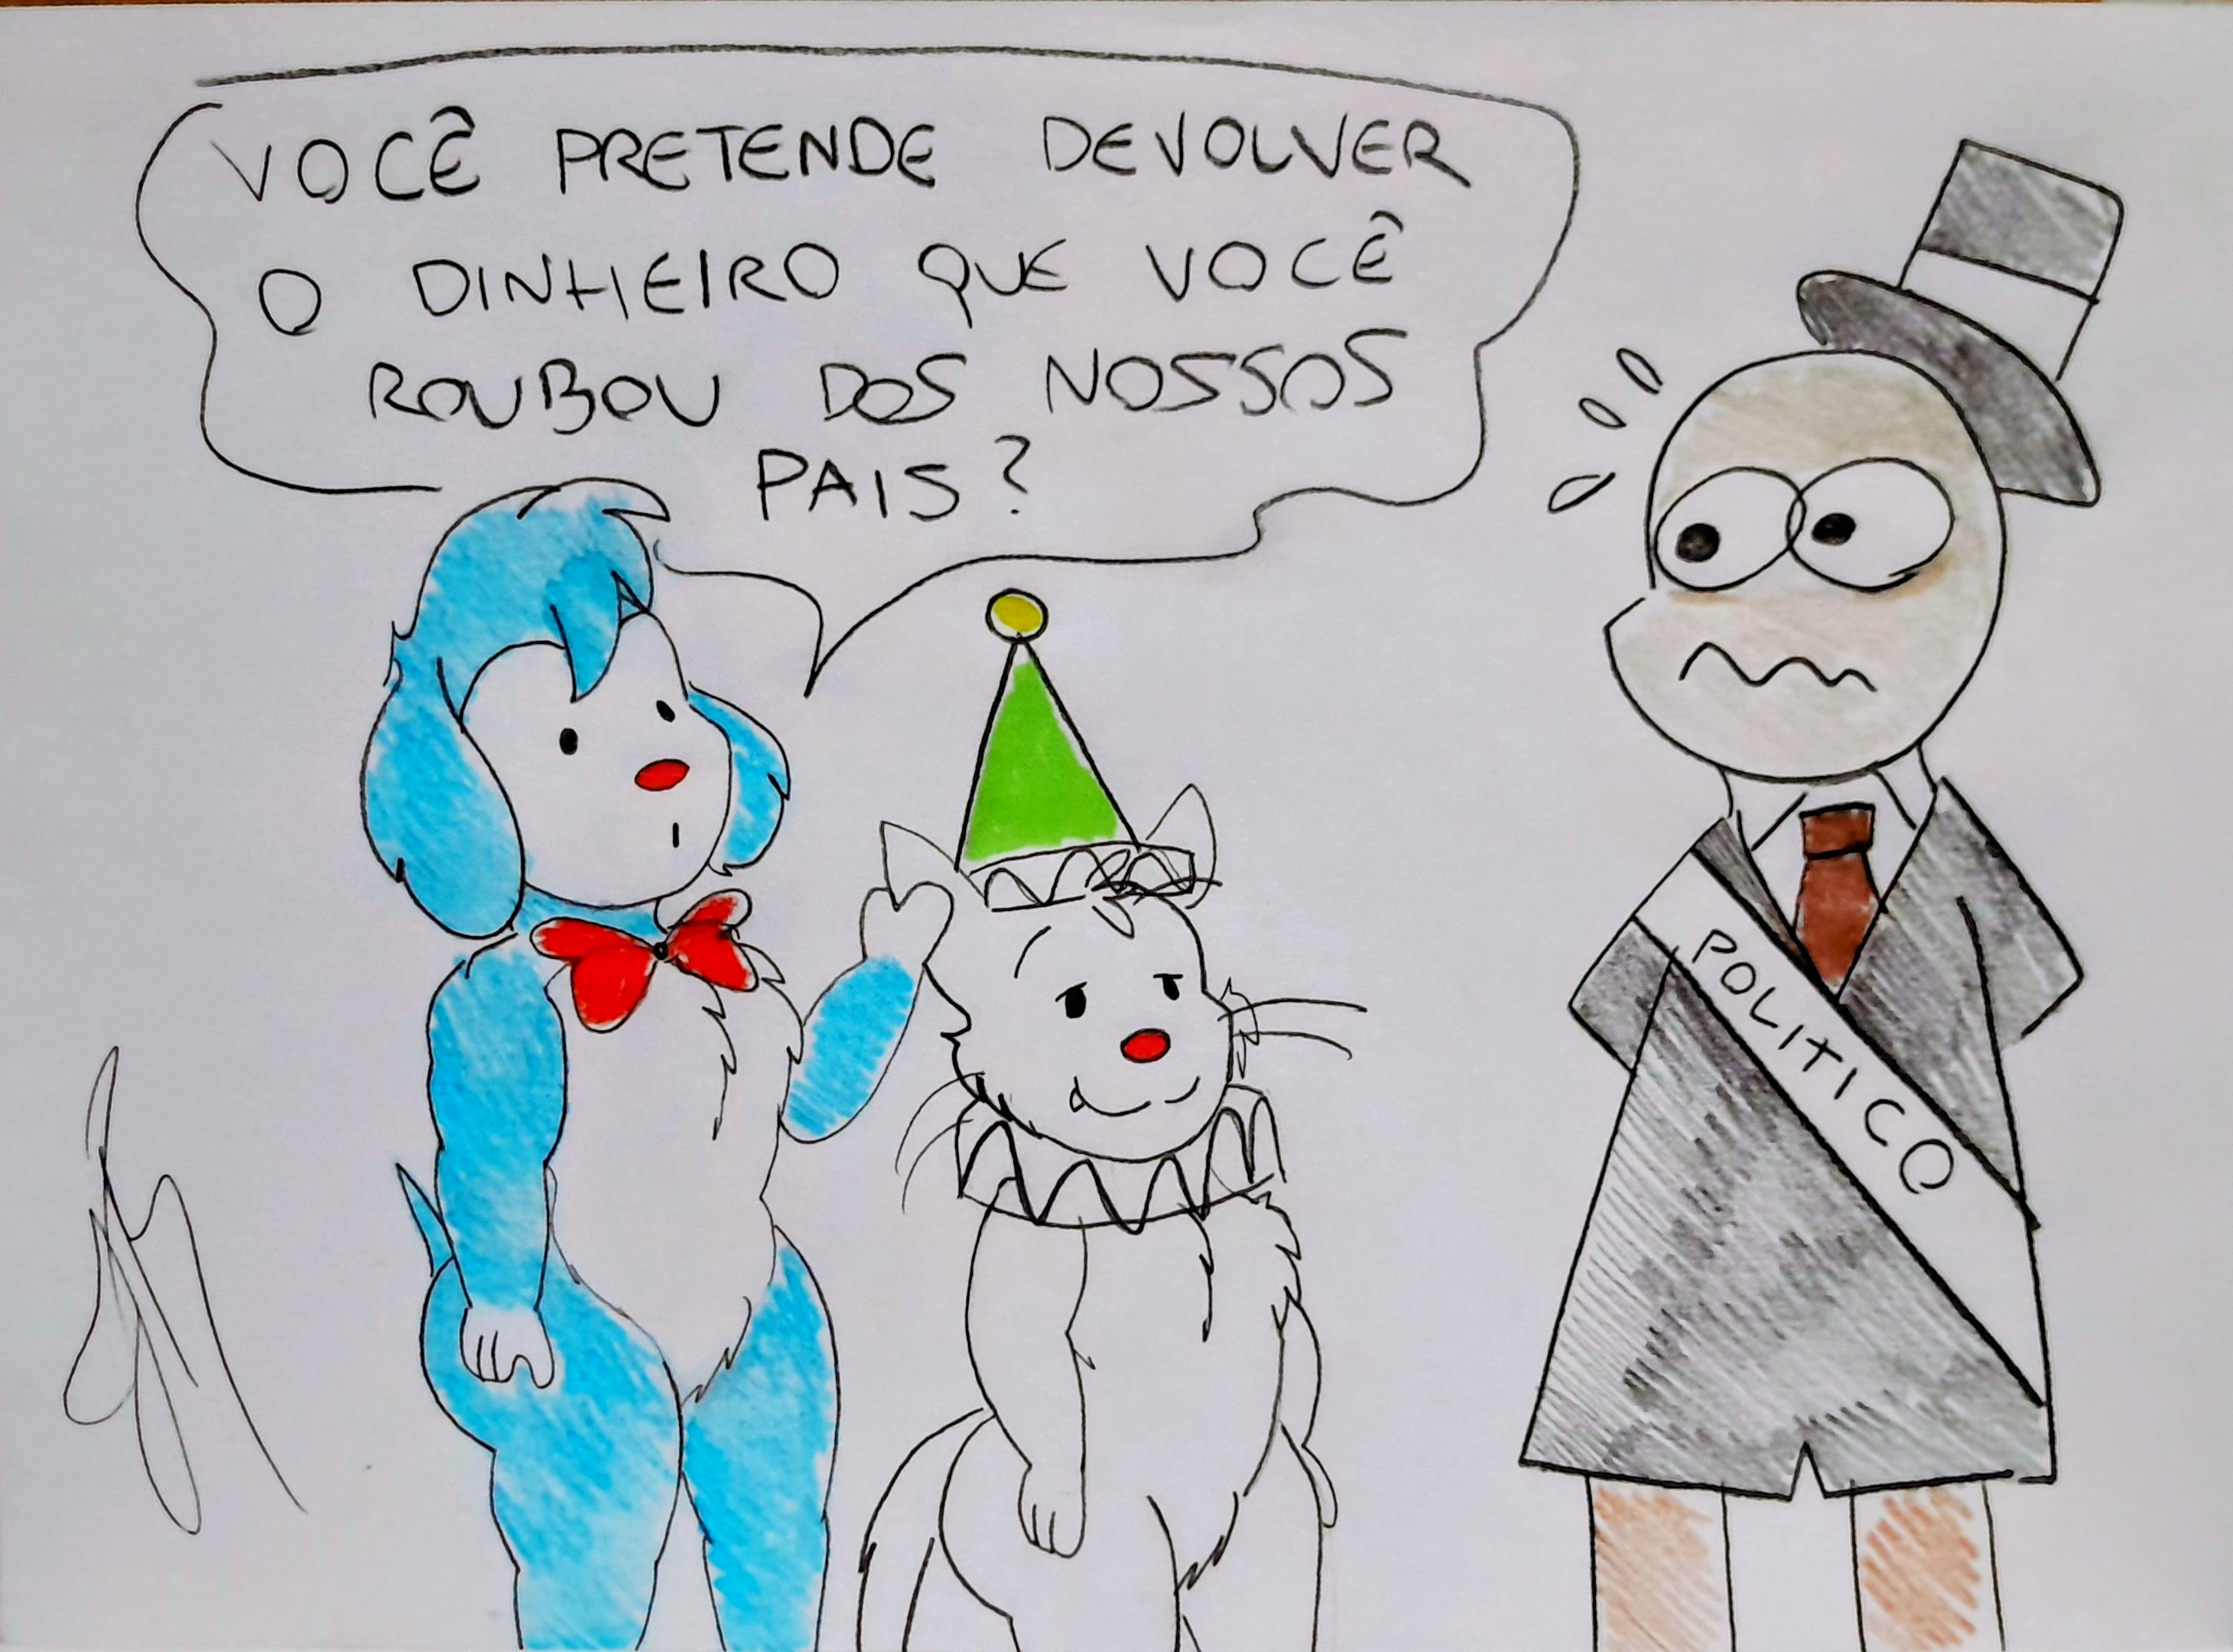 VOCÊ PRETENDE DEVOLVER
O DINHEIRO QUE VOCÊ
ROUBOU DOS NOSSOS
PAIS?
POLITICO